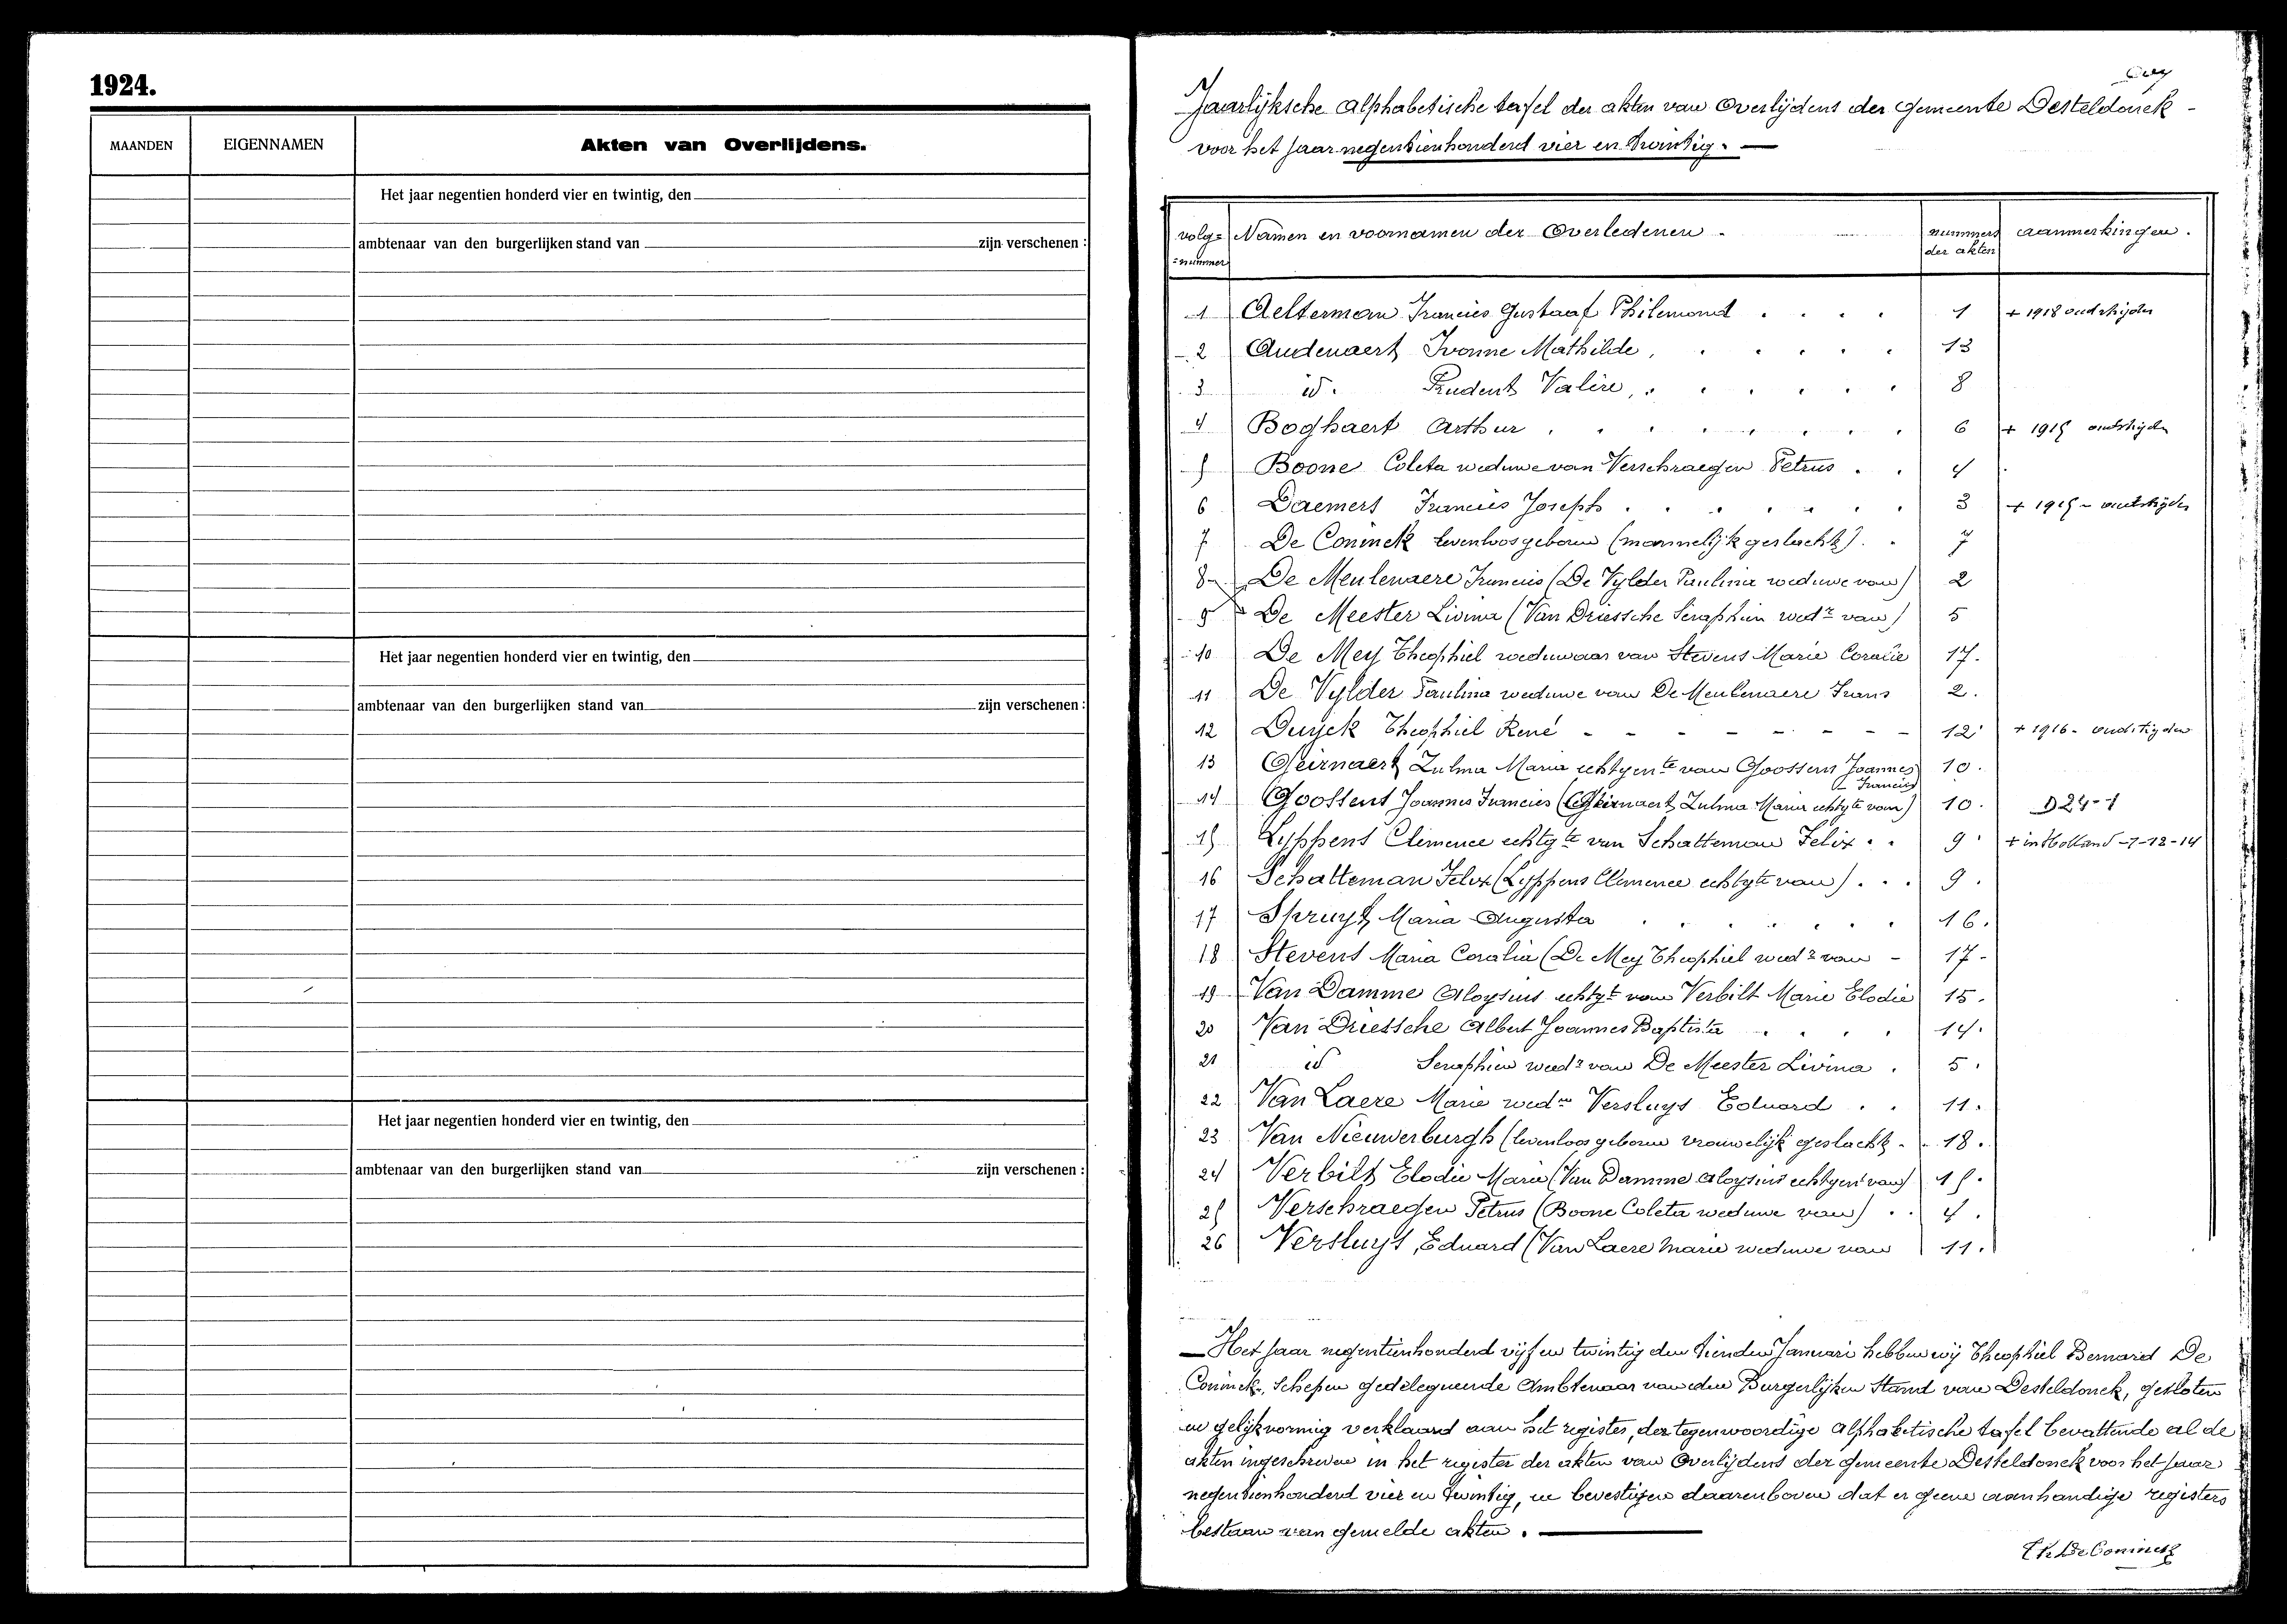 1924.
MAANDEN EIGENNAMEN Akten van Overlijdens.
Het jaar negentien honderd vier en twintig, den
ambtenaar van den burgerlijken stand van zijn verschenen :
Het jaar negentien honderd vier en twintig, den
ambtenaar van den burgerlijken stand van zijn verschenen :
Het jaar negentien honderd vier en twintig, den
ambtenaar van den burgerlijken stand van zijn verschenen :
Jaarlijksche Alphabetische tafel der akten van Overlijdens der Gemeente Desteldonck -
voor het jaar negentienhonderd vier en twintig. —
volg= Namen en voornamen der Overledenen . nummers aanmerkingen .
=nummer der akten
1 Aelterman Francies Gustaaf Philemond . . . . 1 + 1918 oudstrijder
2 Audenaert Ivonne Mathilde, . . . . . 13
3 id. Prudent Valère, . . . . . . 8
4 Boghaert Arthur . . . . . . . . 6 + 1915 oudstrijder
5 Boone Coleta weduwe van Verschraegen Petrus . . 4
6 Daemers Francies Joseph . . . . . . . 3 + 1915 - oudstrijder
7 De Coninck levenloos geboren (mannelijk geslacht) . . 7
8 De Meulenaere Francies (De Vylder Paulina weduwe van) 2
9 De Meester Livina (Van Driessche Seraphien wedr van) 5
10 De Mey Theophiel weduwaar van Stevens Marie Coralie 17.
11 De Vylder Paulina weduwe van De Meulenaere Frans 2.
12 Duyck Theophiel René - - - - - - - - 12 + 1916 - oudstrijder
13 Geirnaert Zulma Maria echtgente van Goossens Joannes 10.
Francies
14 Goossens Joannes Francies (Geirnaert Zulma Maria echtgte van) 10. D24-1
15 Lyppens Clemence echtgte van Schatteman Felix . . 9. + in Holland -7-12-14
16 Schatteman Felix (Lyppens Clemence echtgte van) . . . 9.
17 Spruyt Maria Augusta . . . . . . 16.
18 Stevens Maria Coralia (De Mey Theophiel wedr van - 17-
19 Van Damme Aloysius echtgt van Verbilt Marie Elodie 15.
20 Van Driessche Albert Joannes Baptista . . . . 14.
21 id Seraphien wedr van De Meester Livina . 5.
22 Van Laere Marie wedw Versluys Eduard . . 11.
23 Van Nieuwerburgh (levenloos geboren vrouwelijk geslacht - 18.
24 Verbilt Elodie Marie (Van Damme Aloysius echtgent van) 15.
25 Verschraegen Petrus (Boone Coleta weduwe van) . . 4.
26 Versluys, Eduard (Van Laere Marie weduwe van 11.
— Het jaar negentienhonderd vijf en twintig den tienden Januari hebben wij Theophiel Bernard De
Coninck, Schepen gedelegueerde Ambtenaar van den Burgerlijken Stand van Desteldonck, gesloten
en gelijkvormig verklaard aan het register, der tegenwoordige Alphabetische tafel bevattende al de
akten ingeschreven in het register der akten van Overlijdens der gemeente Desteldonck voor het jaar
negentienhonderd vier en twintig, en bevestigen daarenboven dat er geene aanhandige registers
bestaan van gemelde akten . —
Th De Coninck